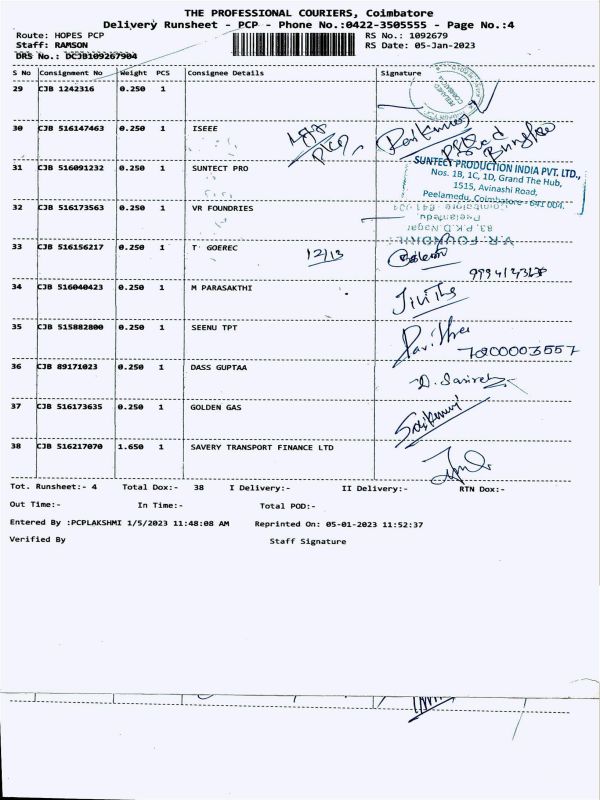 THE PROFESSIONAL COURIERS, Coimbatore
Delivery Runsheet - PCP - Phone No.:0422-3505555 - Page No.:4
Route: HOPES PCP
RS No.: 1092679
Staff: RAMSON
RS Date: 05-Jan-2023
DRS No.: DCJB109267904
S No Consignment No Weight PCS Consignee Details Signature
29 CJB 1242316 0.250 1
30 CJB 516147463 0.250 1 ISEEE
31 CJB 516091232 0.250 1 SUNTECT PRO
SUNTECT PRODUCTION INDIA PVT. LTD.,
Nos. 1B, 1C, 1D, Grand The Hub,
1515, Avinashi Road,
Peelamedu, Coimbatore - 641 004.
32 CJB 516173563 0.250 1 VR FOUNDRIES
83, P.K.D. Nagar
Peelamedu
33 CJB 516156217 0.250 1 T GOEREC 12/13
34 CJB 516040423 0.250 1 M PARASAKTHI
35 CJB 515882800 0.250 1 SEENU TPT
Pavithra
36 CJB 89171023 0.250 1 DASS GUPTAA
37 CJB 516173635 0.250 1 GOLDEN GAS
38 CJB 516217070 1.650 1 SAVERY TRANSPORT FINANCE LTD
Tot. Runsheet:- 4 Total Dox:- 38 I Delivery:- II Delivery:- RTN Dox:-
Out Time:- In Time:- Total POD:-
Entered By :PCPLAKSHMI 1/5/2023 11:48:08 AM Reprinted On: 05-01-2023 11:52:37
Verified By Staff Signature